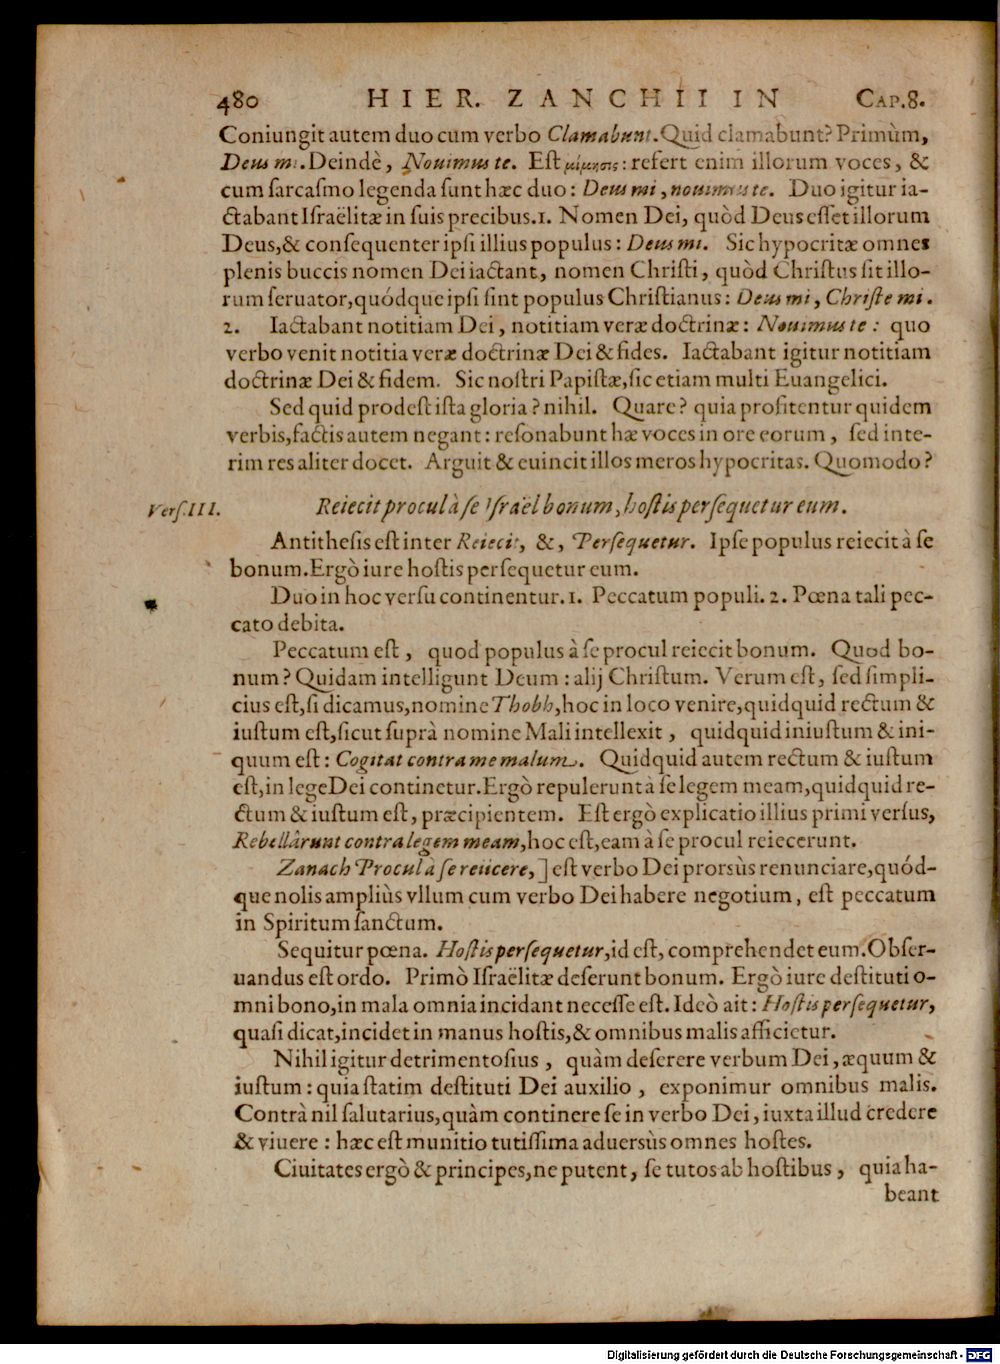 480 HIER. ZANCHII IN CAP.8.
Coniungit autem duo cum verbo Clamabunt. Quid clamabunt? Primùm,
Deus mi. Deindè, Nouimus te. Est μίμησις: refert enim illorum voces, &
cum sarcasmo legenda sunt hæc duo: Deus mi, nouimus te. Duo igitur ia-
ctabant Israëlitæ in suis precibus. 1. Nomen Dei, quòd Deus esset illorum
Deus, & consequenter ipsi illius populus: Deus mi. Sic hypocritæ omnes
plenis buccis nomen Dei iactant, nomen Christi, quòd Christus sit illo-
rum seruator, quódque ipsi sint populus Christianus: Deus mi, Christe mi.
2. Iactabant notitiam Dei, notitiam veræ doctrinæ: Nouimus te: quo
verbo venit notitia veræ doctrinæ Dei & fides. Iactabant igitur notitiam
doctrinæ Dei & fidem. Sic nostri Papistæ, sic etiam multi Euangelici.
Sed quid prodest ista gloria? nihil. Quare? quia profitentur quidem
verbis, factis autem negant: resonabunt hæ voces in ore eorum, sed inte-
rim res aliter docet. Arguit & euincit illos meros hypocritas. Quomodo?
Vers. III. Reiecit procul à se Israël bonum, hostis persequetur eum.
Antithesis est inter Reiecit, &, Persequetur. Ipse populus reiecit à se
bonum. Ergò iure hostis persequetur eum.
Duo in hoc versu continentur. 1. Peccatum populi. 2. Pœna tali pec-
cato debita.
Peccatum est, quod populus à se procul reiecit bonum. Quod bo-
num? Quidam intelligunt Deum: alij Christum. Verum est, sed simpli-
cius est, si dicamus, nomine Thobh, hoc in loco venire, quidquid rectum &
iustum est, sicut suprà nomine Mali intellexit, quidquid iniustum & ini-
quum est: Cogitat contra me malum. Quidquid autem rectum & iustum
est, in lege Dei continetur. Ergò repulerunt à se legem meam, quidquid re-
ctum & iustum est, præcipientem. Est ergò explicatio illius primi versus,
Rebellârunt contra legem meam, hoc est, eam à se procul reiecerunt.
Zanach Procul à se reiicere,] est verbo Dei prorsùs renunciare, quód-
que nolis ampliùs vllum cum verbo Dei habere negotium, est peccatum
in Spiritum sanctum.
Sequitur pœna. Hostis persequetur, id est, comprehendet eum. Obser-
uandus est ordo. Primò Israëlitæ deserunt bonum. Ergò iure destituti o-
mni bono, in mala omnia incidant necesse est. Ideò ait: Hostis persequetur,
quasi dicat, incidet in manus hostis, & omnibus malis afficietur.
Nihil igitur detrimentosius, quàm deserere verbum Dei, æquum &
iustum: quia statim destituti Dei auxilio, exponimur omnibus malis.
Contrà nil salutarius, quàm continere se in verbo Dei, iuxta illud credere
& viuere: hæc est munitio tutissima aduersùs omnes hostes.
Ciuitates ergò & principes, ne putent, se tutos ab hostibus, quia ha-
beant
Digitalisierung gefördert durch die Deutsche Forschungsgemeinschaft - DFG